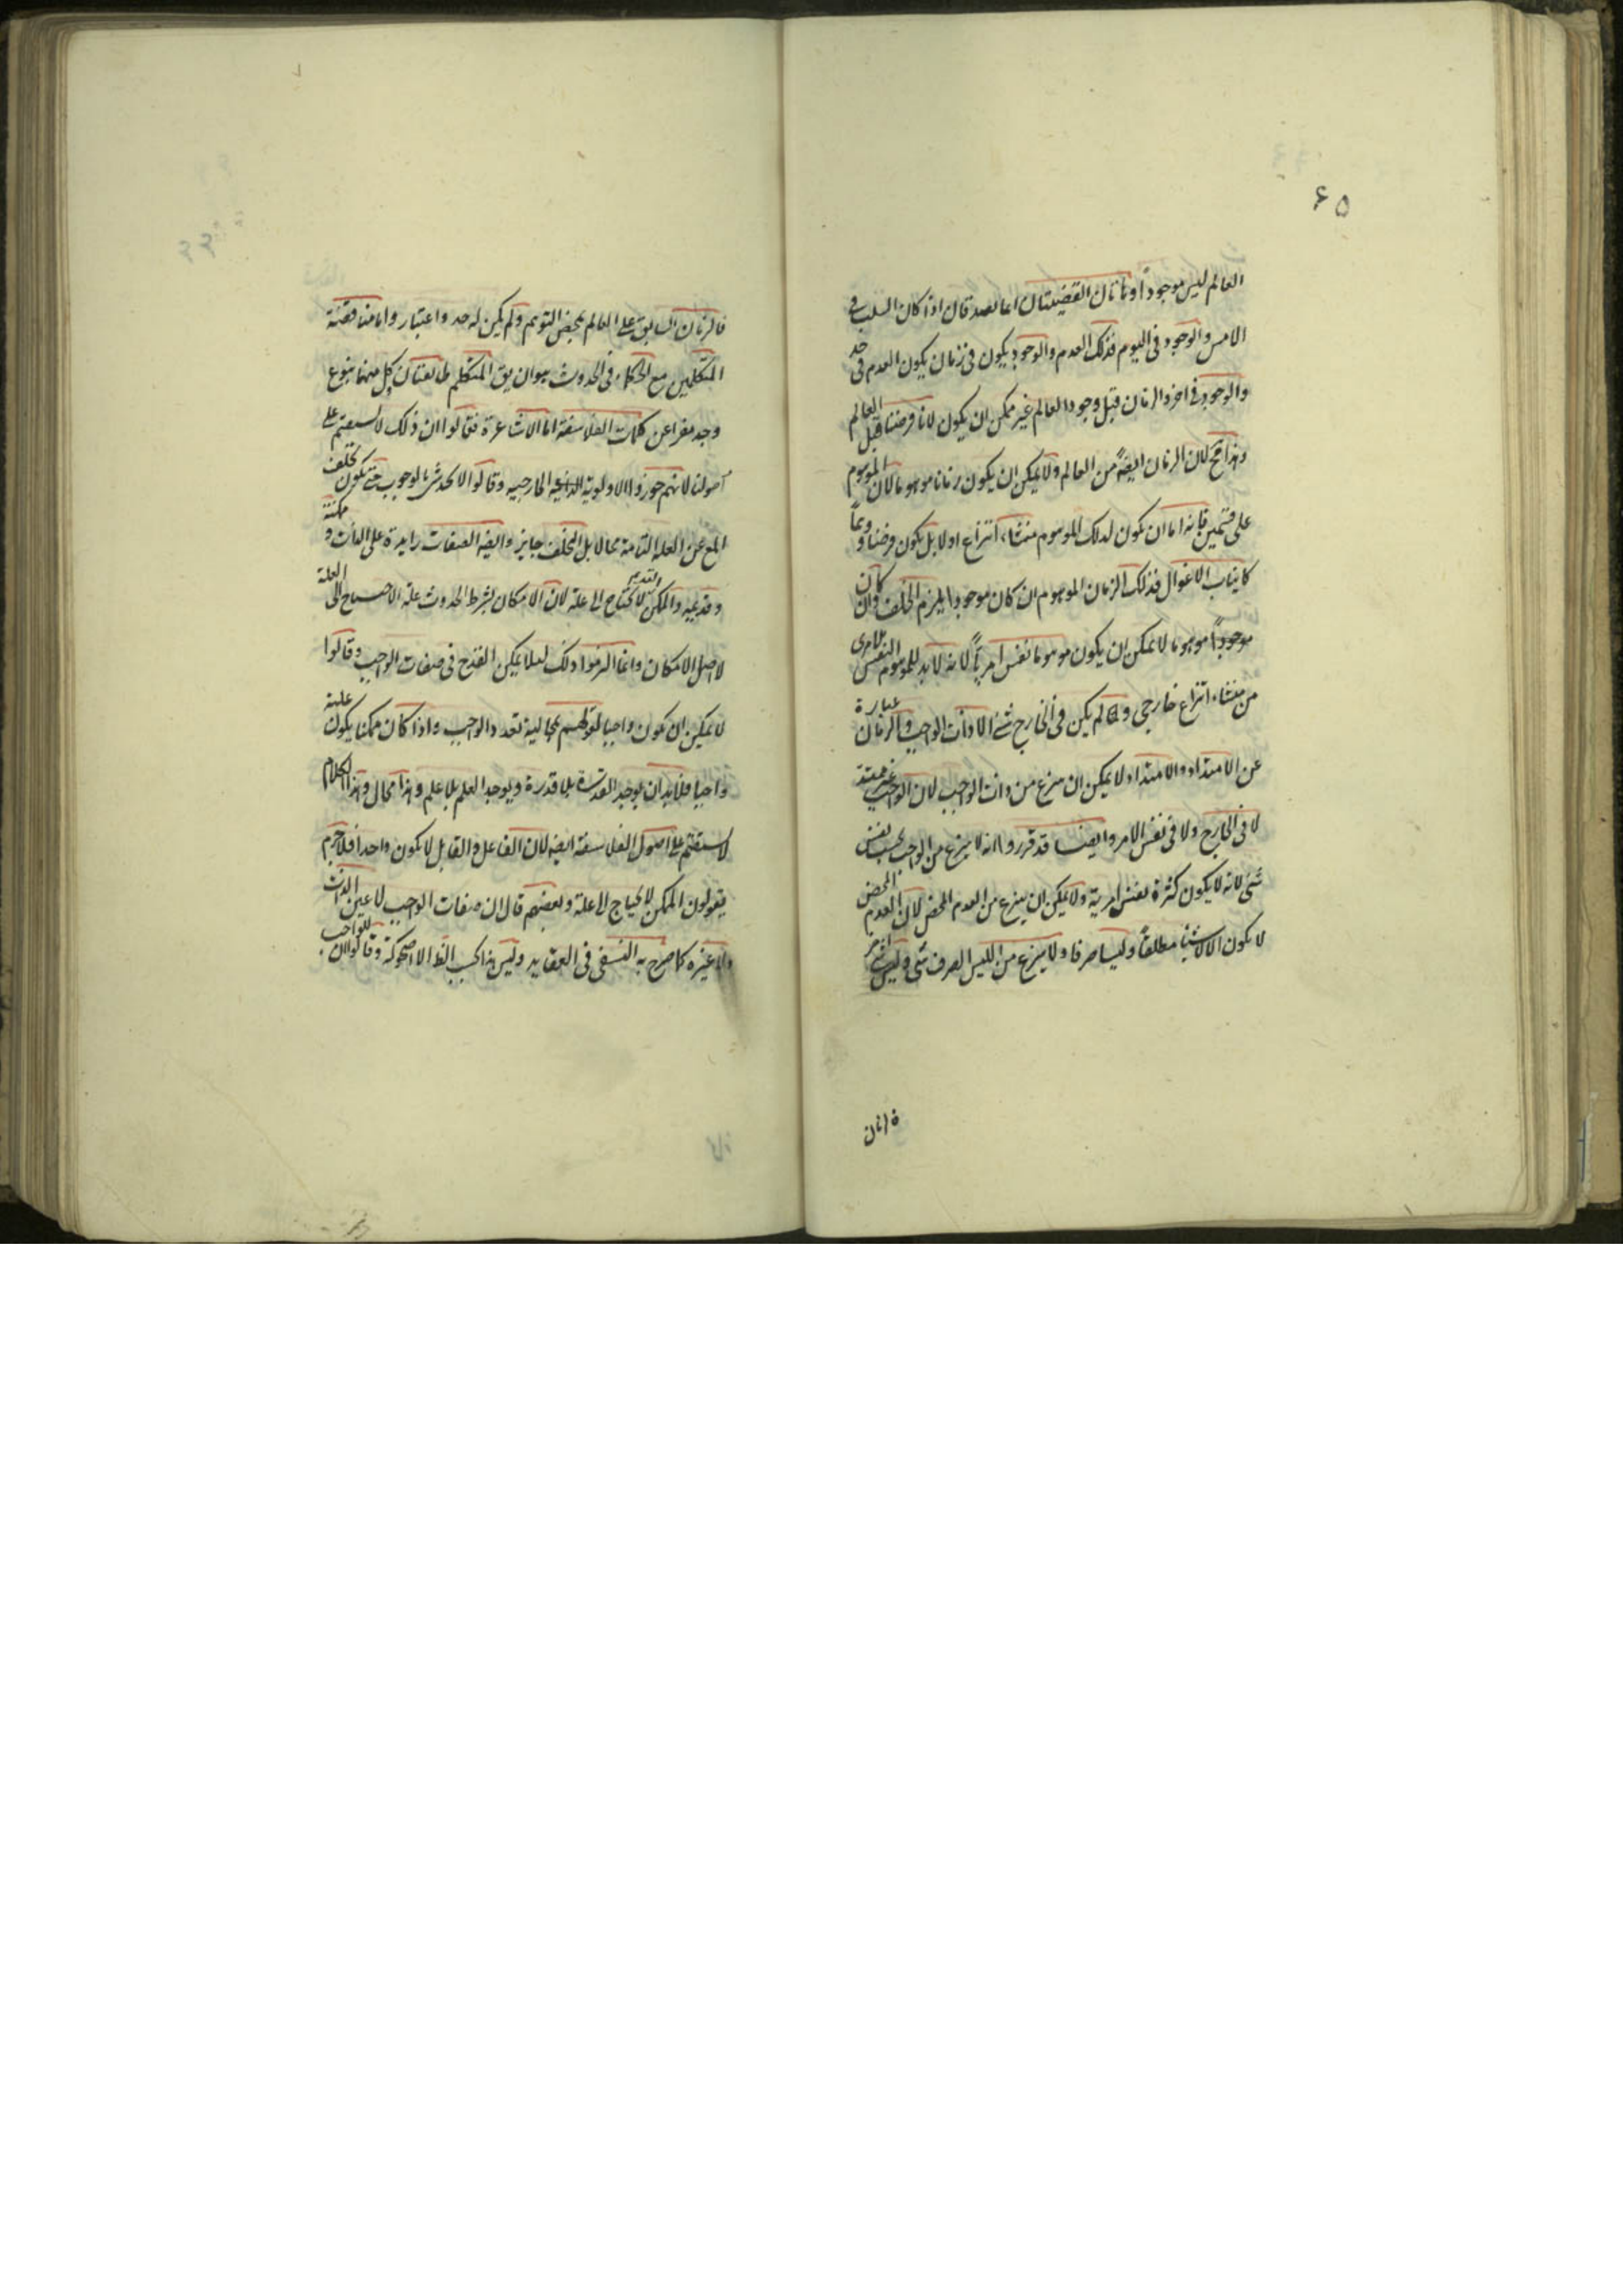 ۶۵
العالم ليس موجوداً وهاتان القضيتان انما تصدقان اذا كان السلب فى
الامس والوجود فى اليوم فذلك العدم والوجود يكون فى زمان يكون العدم فى حد
والوجود فى اخر والزمان قبل وجود العالم غير ممكن ان يكون لانا فرضنا قبل العالم
وهذا قبح لان الزمان ايضاً من العالم ولا يمكن ان يكون زمانا موهوما لان الموهوم
على قسمين فانه اما ان يكون لذلك الموهوم منشاء انتزاع اولا بل يكون فرضا و
كانياب الاغوال فذلك الزمان الموهوم ان كان موجودا يلزم الخلف وان كان
موجوداً موهوما لا يمكن ان يكون موهوما نفس امرياً لانه لابد للموهوم النفس الامرى
من منشاء انتزاع خارجى و لم يكن فى الخارج شئ الا ذات الواجب والزمان عبارة
عن الامتداد والامتداد لا يمكن ان ينتزع من ذات الواجب لان الواجب غير ممتد
لا فى الخارج ولا فى نفس الامر وايضا قد قرروا انه لا ينتزع من الواجب بحسب نفس
شئ لانه لا يكون كثرة نفس امرية ولا يمكن ان ينتزع من العدم المحض لان العدم المحض
لا يكون الا لاشيئا مطلقاً وليسا صرفا ولا ينتزع من الليس الصرف شئ وليس
فالزمان السابق على العالم بمحض التوهم ولم يكن له حد واعتبار واما مناقضة
المتكلمين مع الحكماء فى الحدوث هو ان يق المتكلم طائفتان كل منهما بنوع
وجد مفرا عن كلمات الفلاسفة اما الاشاعرة فقالوا ان ذلك لا يستقيم على
اصولنا لانهم جوزوا الاولوية الخارجيه وقالوا لا تحدث بالوجوب حتى يكون تخلف
المع عن العلة التامة محالا بل التخلف جايز وايضه الصفات زايدة على الذات و ممكنة
وقديمه والممكن القديم لا يحتاج الى علة لان الامكان بشرط الحدوث علة الاحتياج الى العلة
لا اصل الامكان وانما التزموا ذلك لئلا يمكن القدح فى صفات الواجب وقالوا
لا يمكن ان يكون واجبا لقولهم بمحالية تعدد الواجب واذا كان ممكنا يكون علته
واجبا فلابد ان يوجد القدرة بلا قدرة ويوجد العلم بلا علم وهذا محال وهذا الكلام
لا يستقيم على اصول الفلاسفة ايضه لان الفاعل والقابل لا يكون واحدا فلاجرم
يقولون الممكن لا يحتاج الى علة وبعضهم قال ان صفات الواجب لا عين الذات
ولا غيره كما صرح به النسفى فى العقايد وليس هذا بحسب الظ الا اضحوكة وقالوا للواجب